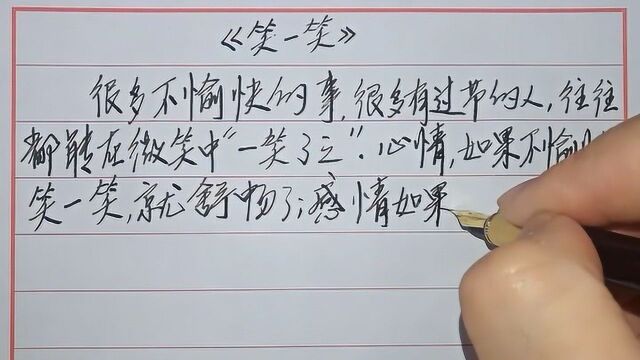 《笑一笑》
很多不愉快的事，很多有过节的人，往往
都能在微笑中“一笑了之”．心情，如果不愉
笑一笑，就舒畅了；感情如果